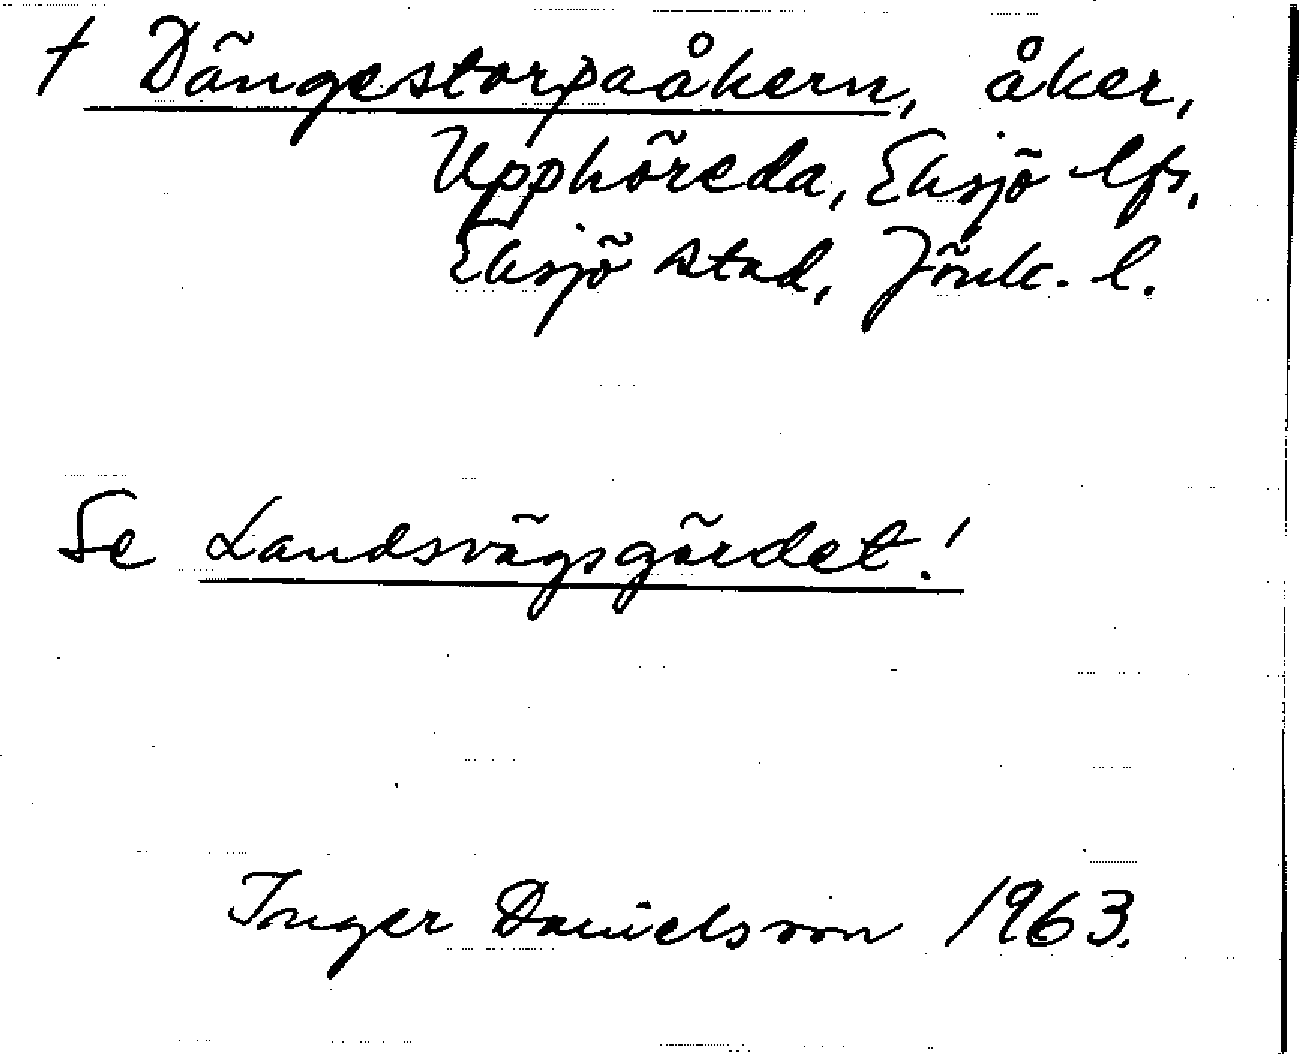 † Dängestorpaåkern, åker,
Upphöreda, Eksjö lfs,
Eksjö stad, Jönk. l.
Se Landsvägsgärdet!
Inger Danielsson 1963.